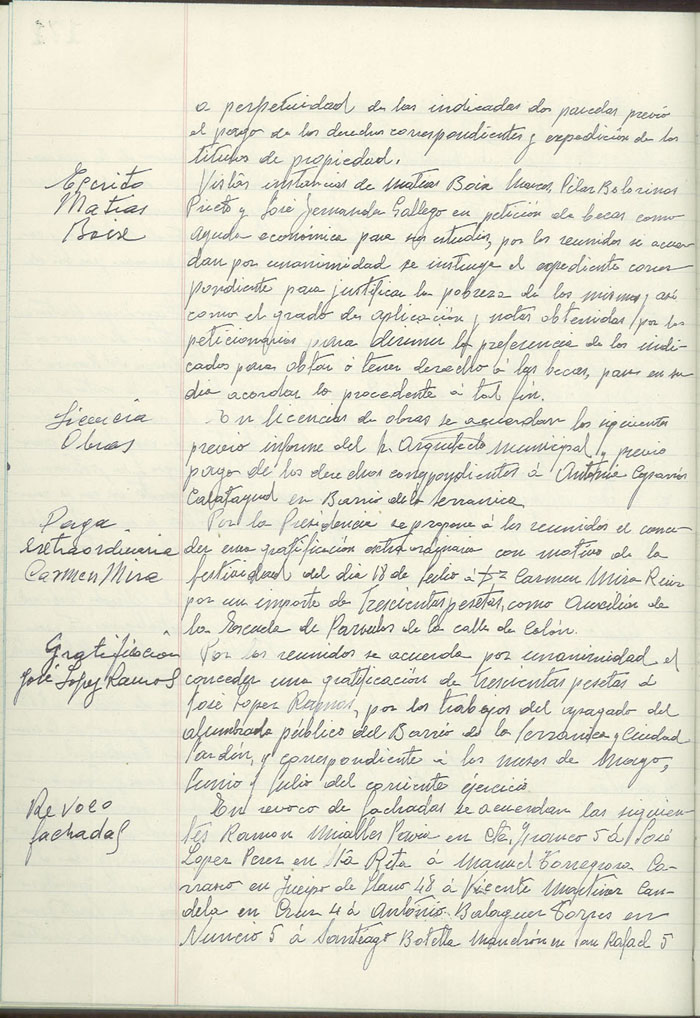 a perpetuidad de las indicadas dos parcelas previo
el pago de los derechos correspondientes y expedición de los
titulos de propiedad.
Escrito
Matias
Boix
Vistas instancias de Matias Boix Marcos, Pilar
Prieto y José Fernandez Gallego en petición de becas como
ayuda económica para sus estudios, por los reunidos se acuer-
dan por unanimidad se instruya el expediente corres
pondiente para justificar la pobreza de los mismos, asi
como el grado de aplicación y notas obtenidas por los
peticionarios para dirimir la preferencia de los indi-
cados para obtar ó tener derecho á las becas, para en su
dia acordar lo procedente á tal fin.
Licencia
Obras
En licencias de obras se acuerdan las siguientes
previo informe del Sr. Arquitecto Municipal y previo
pago de los derechos correspondientes á Antonia
Calatayud en Barrio de la Serranica
Paga
extraordinaria
Carmen Mira
Por la Presidencia se propone á los reunidos el conce-
der una gratificación extraordinaria con motivo de la
festividad del dia 18 de Julio á Dª Carmen Mira
por un importe de Trescientas pesetas, como Auxiliar de
la Escuela de Parvulos de la calle de Colón.
Gratificación
José Lopez Ramos
Por los reunidos se acuerda por unanimidad el
conceder una gratificación de trescientas pesetas á
José Lopez Ramos, por los trabajos del apagado del
alumbrado público del Barrio de la Serranica y Ciudad
Jardín, y correspondiente á los meses de Mayo,
Junio y Julio del corriente ejercicio.
Revoco
fachadas
En revoco de fachadas se acuerdan las siguien-
tes Ramon Miralles Pavia en Franco 5 á José
Lopez Perez en Stª Rita á Manuel Torregrosa Ca-
rrasco en Queipo de Llano 48 á Vicente Martinez Can-
dela en Cruz 4 á António Balaguer Torres en
Nuncio 5 á Santiago Botella en San Rafael 5